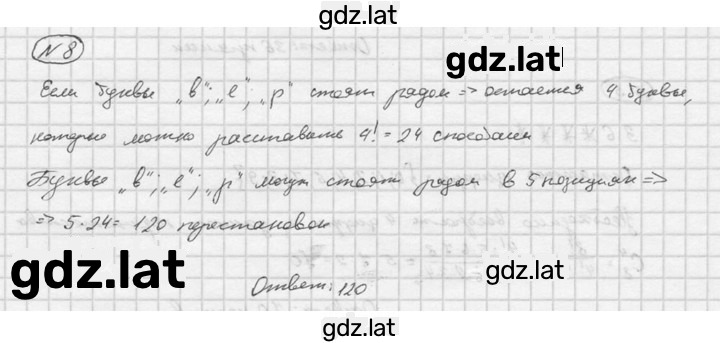 gdz.lat
N 8
gdz.lat
Если буквы „в"; „е"; „р" стоят рядом => остается 4 буквы,
которые можно расставить 4! = 24 способами
Буквы „в"; „е"; „р" могут стоять рядом в 5 позициях =>
=> 5·24 = 120 перестановок
gdz.lat
gdz.lat
Ответ: 120
gdz.lat